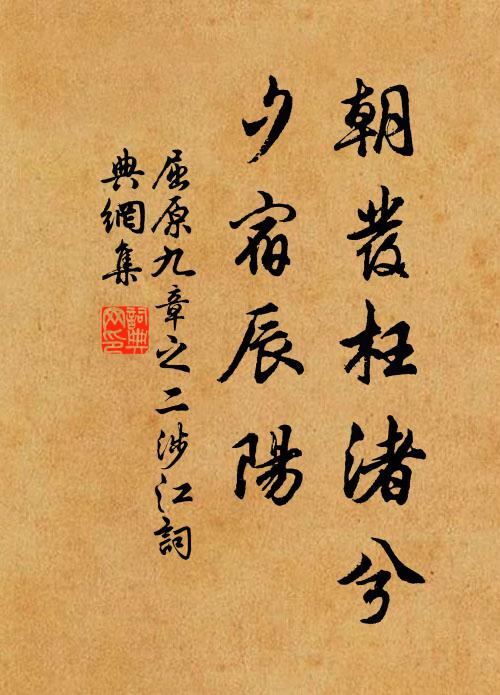 朝發枉渚兮
夕宿辰陽
屈原九章之二涉江詞
典網集
詞典
网印